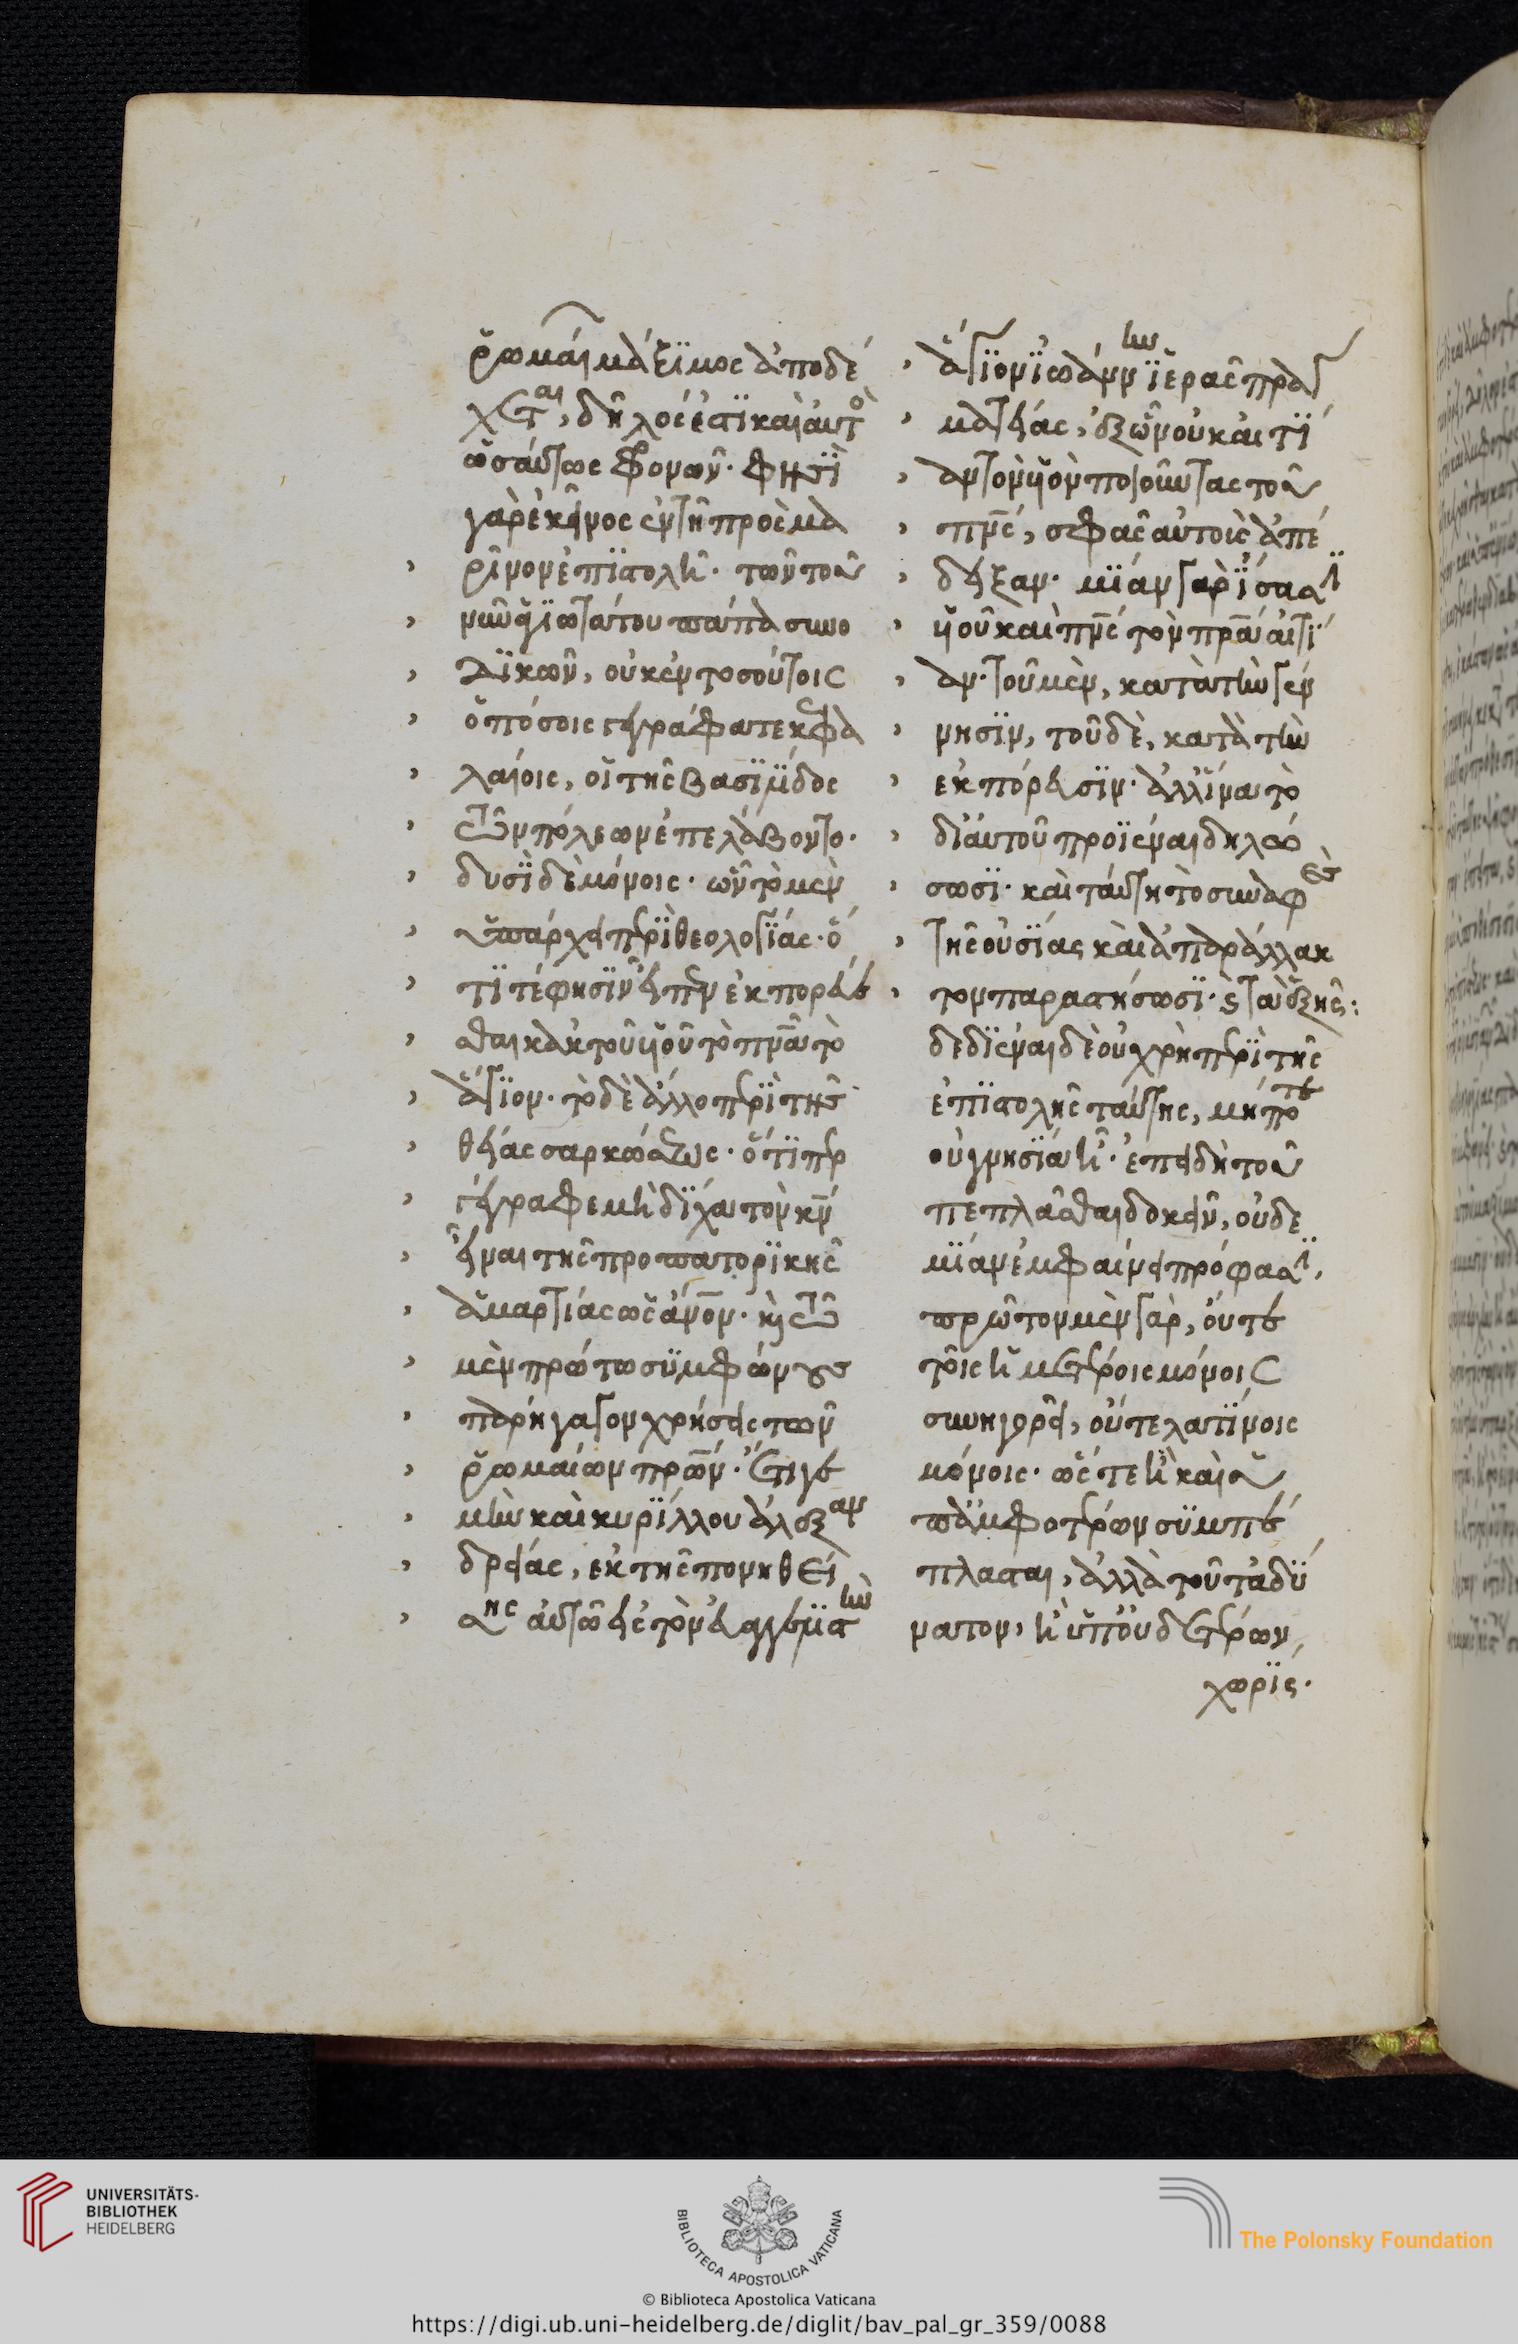 ῥωμαί μάξιμος ἀποδέ
χεται, δῆλος ἐστὶ καὶ αὐτὸ
ὡσαύτως φρονῶν. φησὶ
γὰρ ἐκεῖνος ἐν τῇ πρὸς μα
ρῖνον ἐπιστολῇ. τῶν τοῦ
νῦν ἁγιωτάτου πάπα συνο
δικῶν, οὐκ ἐν τοσούτοις
ὁπόσοις γεγράφατε κεφα
λαίοις, οἱ τῆς βασιλίδος
τῶν πόλεων ἐπελάβοντο.
δυσὶ δὲ μόνοις. ὧν τὸ μὲν
ὑπάρχει περὶ θεολογίας. ὅ
τι τέ φησιν εἶπεν ἐκπορεύεσ
θαι κἀκ τοῦ υἱοῦ τὸ πνᾶ τὸ
ἅγιον. τὸ δὲ ἄλλο περὶ τῆς
θείας σαρκώσεως. ὅτι περ
γέγραφε μὴ δίχα τὸν κν
εἶναι τῆς προπατορικῆς
ἁμαρτίας ὡς ἄνον. καὶ τῶ
μὲν πρώτω συμφώνους
παρήγαγον χρήσεις τῶν
ῥωμαίων πρων. ἔτι γε
μὴν καὶ κυρίλλου ἀλεξαν
δρείας, ἐκ τῆς πονηθεί
σης αὐτῶ εἰς τὸν εὐαγγελιστὴν
ἅγιον ἰωάννην ἱερᾶς πραγ
ματείας, ἐξ ὧν οὐκ αἰτί
αν τὸν υἱὸν ποιοῦντας τοῦ
πνς, σφᾶς αὐτοὺς ἀπέ
δειξαν. μίαν γὰρ ἴσασιν
υἱοῦ καὶ πνς τὸν πρα αἰτί
αν. τοῦ μὲν, κατὰ τὴν γέν
νησιν, τοῦ δὲ, κατὰ τὴν
ἐκπόρευσιν. ἀλλ' ἵνα τὸ
δι' αὐτοῦ προϊέναι δηλώ
σωσι. καὶ ταύτη τὸ συναφὲς
τῆς οὐσίας καὶ ἀπαράλλακ
τον παραστήσωσι. καὶ τὰ ἑξῆς:
δεδιέναι δὲ οὐ χρὴ περὶ τῆς
ἐπιστολῆς ταύτης, μήποτε
οὐ γνησία ἦ. ἐπειδὴ τοῦ
πεπλᾶσθαι δοκεῖν, οὐδε
μίαν ἐμφαίνει πρόφασιν,
πρῶτον μὲν γὰρ, οὔτε
τοῖς ἡμετέροις μόνοις
συνηγορεῖ, οὔτε λατίνοις
μόνοις. ὥστε ἢ καὶ ὑ
π' ἀμφοτέρων συμπέ
πλασται, ἀλλὰ τοῦτ' ἀδύ
νατον, ἢ ὑπ' οὐδετέρων,
χωρίς.
UNIVERSITÄTS-
BIBLIOTHEK
HEIDELBERG
BIBLIOTECA APOSTOLICA VATICANA
The Polonsky Foundation
© Biblioteca Apostolica Vaticana
https://digi.ub.uni-heidelberg.de/diglit/bav_pal_gr_359/0088